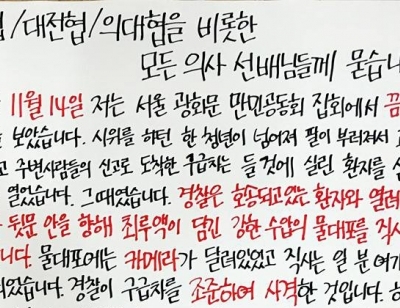 /대전협/의대협을 비롯한
모든 의사 선배님들께 묻습니
11월 14일 저는 서울 광화문 만민공동회 집회에서 끔
보았습니다. 시위를 하던 한 청년이 넘어져 팔이 부러져서
고 주변사람들의 신고로 도착한 구급차는 들것에 실린 환자를
열었습니다. 그때였습니다. 경찰은 호송되고있는 환자와 열려
뒷문 안을 향해 최루액이 담긴 강한 수압의 물대포를 직사
니다. 물대포에는 카메라가 달려있었고 직사는 일 분 여
되었습니다. 경찰이 구급차를 조준하여 사격한 것입니다.